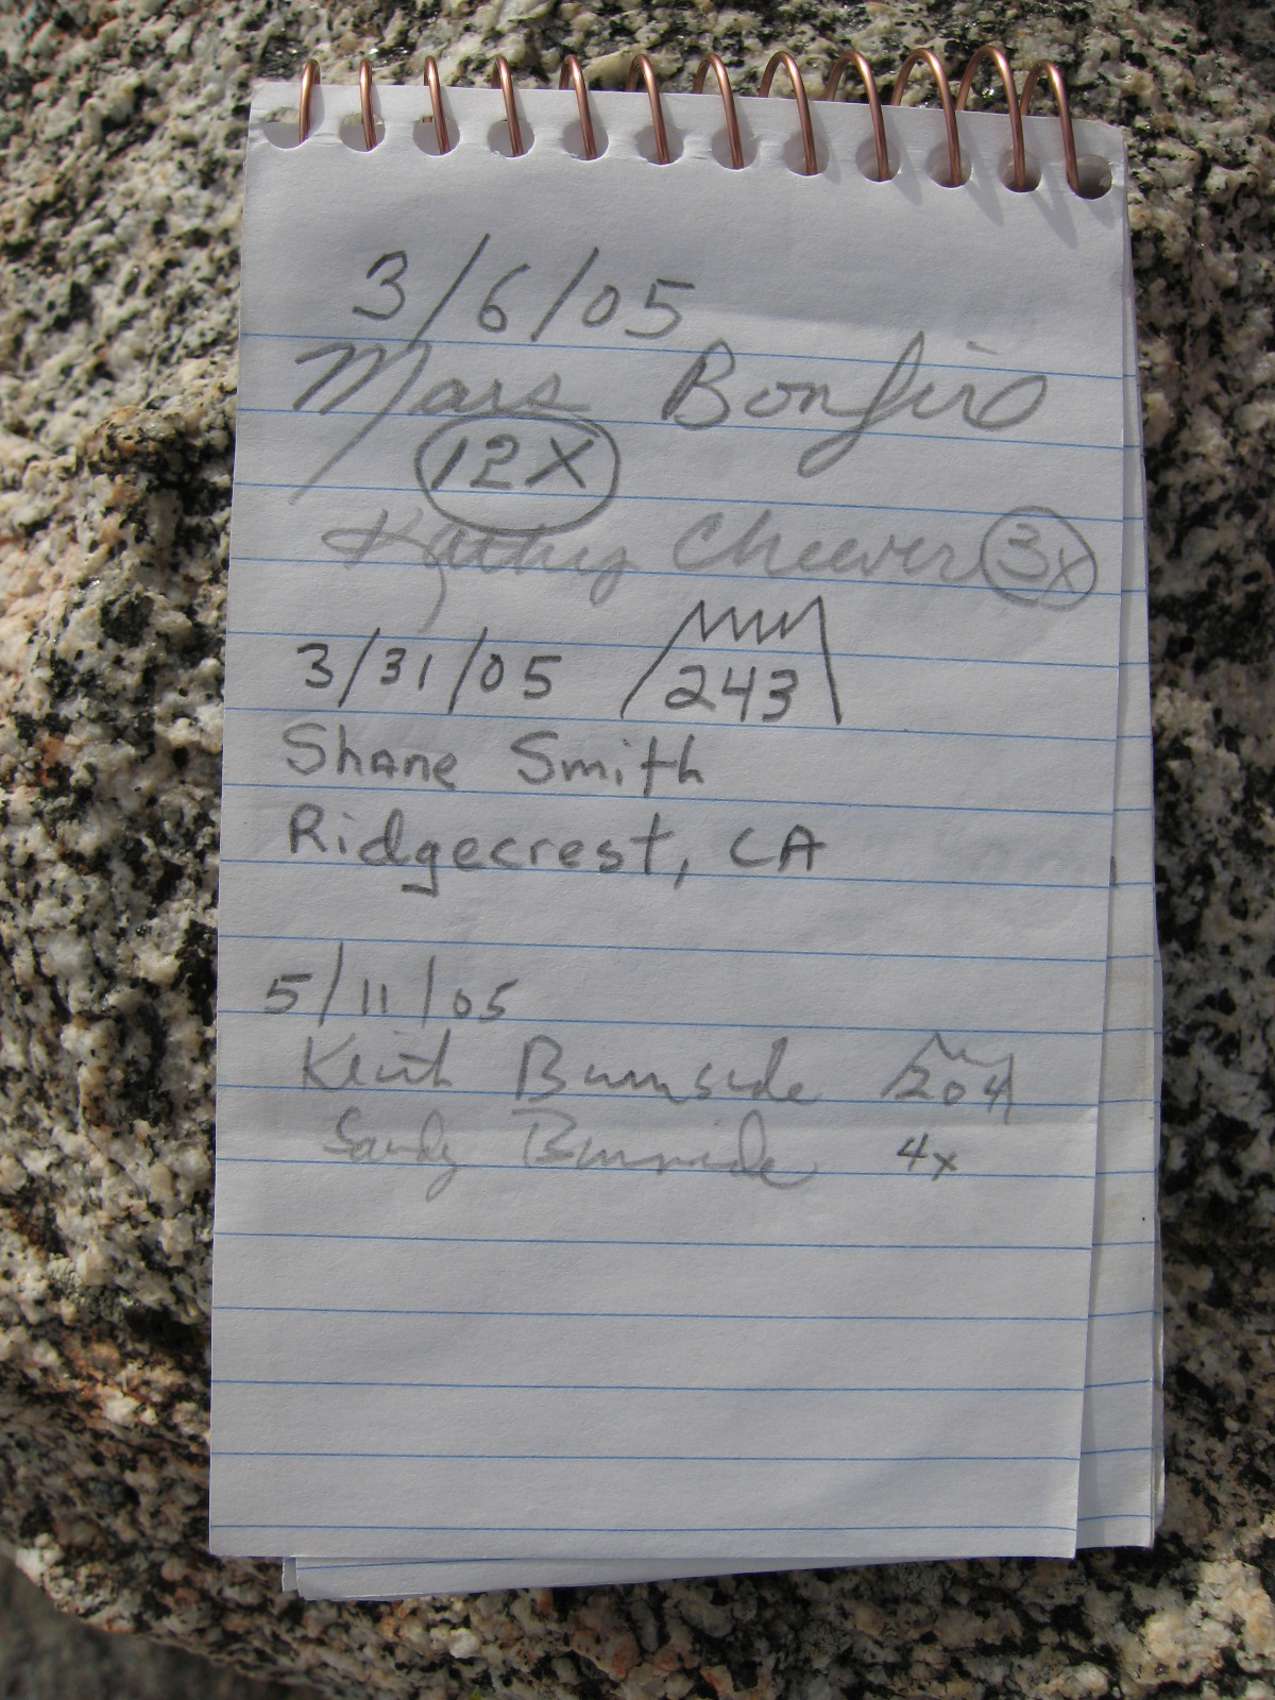 3/6/05
Mars Bonfire
12X
Kathy Cheever 3x
3/31/05 243
Shane Smith
Ridgecrest, CA
5/11/05
Keith Burnside 204
Sandy Burnside 4x